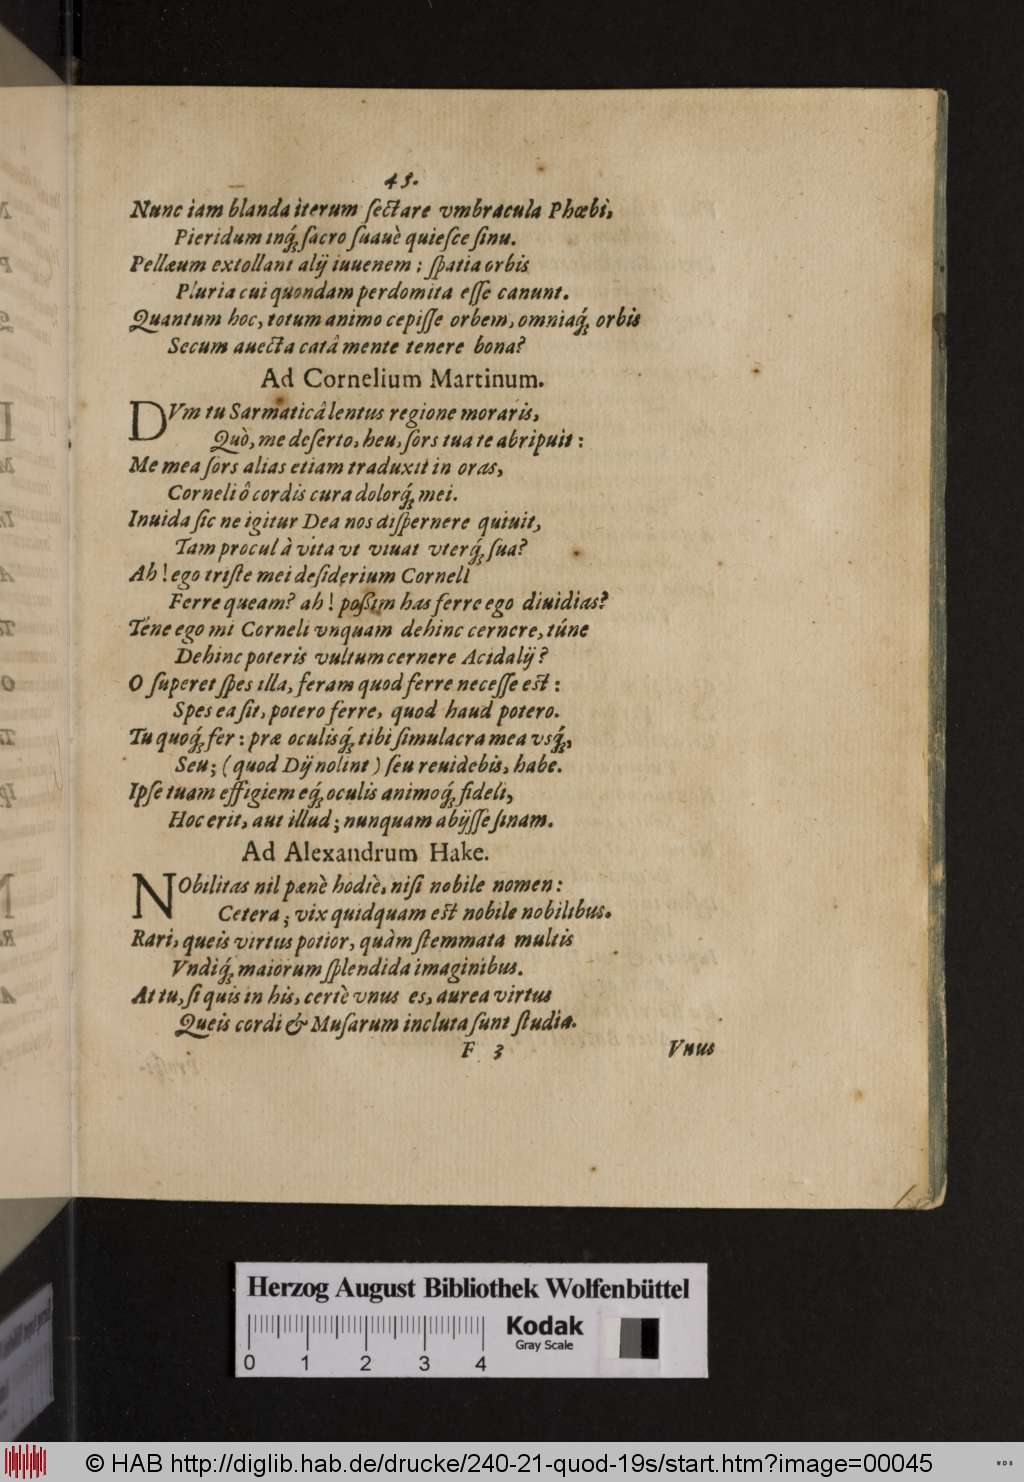 45.
Nunc iam blanda iterum ſectare vmbracula Phœbi,
Pieridum inq́; ſacro ſuauè quieſce ſinu.
Pellæum extollant alij iuuenem; ſpatia orbis
Pluria cui quondam perdomita eſſe canunt.
Quantum hoc, totum animo cepiſſe orbem, omniaq́; orbis
Secum auecta catâ mente tenere bona?
Ad Cornelium Martinum.
DVm tu Sarmaticâ lentus regione moraris,
Quò, me deſerto, heu, ſors tua te abripuit:
Me mea ſors alias etiam traduxit in oras,
Corneli ô cordis cura dolorq́; mei.
Inuida ſic ne igitur Dea nos diſpernere quiuit,
Tam procul à vita vt viuat vterq́; ſua?
Ah! ego triſte mei deſiderium Corneli
Ferre queam? ah! poßim has ferre ego diuidias?
Téne ego mi Corneli vnquam dehinc cernere, túne
Dehinc poteris vultum cernere Acidalij?
O ſuperet ſpes illa, feram quod ferre neceſſe est:
Spes ea ſit, potero ferre, quod haud potero.
Tu quoq́; fer: præ oculisq́; tibi ſimulacra mea vsq́;,
Seu; (quod Dij nolint) ſeu reuidebis, habe.
Ipſe tuam effigiem eq́; oculis animoq́; fideli,
Hoc erit, aut illud; nunquam abijſſe ſinam.
Ad Alexandrum Hake.
NObilitas nil pænè hodiè, niſi nobile nomen:
Cetera; vix quidquam est nobile nobilibus.
Rari, queis virtus potior, quàm ſtemmata multis
Vndiq́; maiorum ſplendida imaginibus.
At tu, ſi quis in his, certè vnus es, aurea virtus
Queis cordi & Muſarum incluta ſunt ſtudia.
F 3 Vnus
Herzog August Bibliothek Wolfenbüttel
0 1 2 3 4
Kodak
Gray Scale
© HAB http://diglib.hab.de/drucke/240-21-quod-19s/start.htm?image=00045